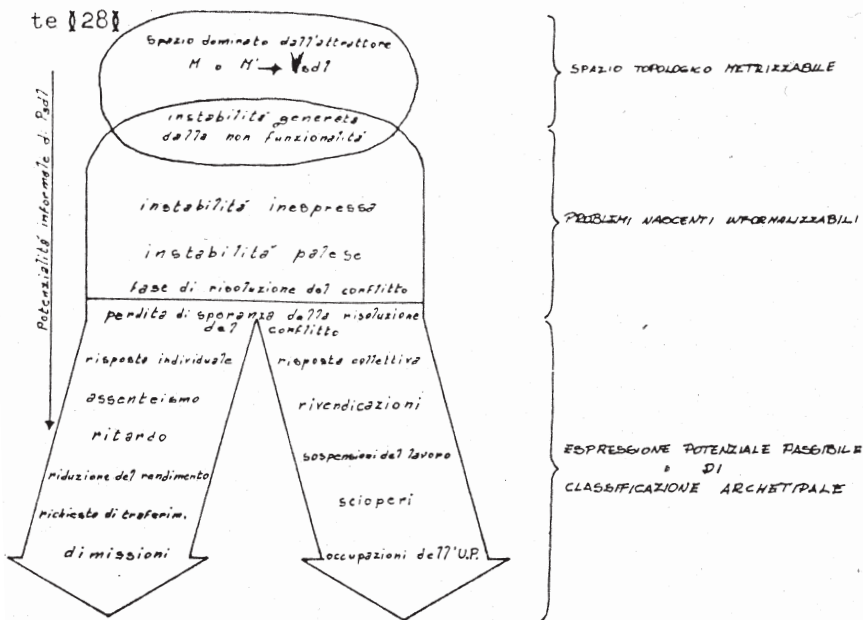 te 28
Spazio dominato dall'attrattore
M o M' Vsd7
instabilità generata
dalla non funzionalità
instabilità inespressa
instabilità palese
fase di risoluzione del conflitto
perdita di speranza della risoluzione
del conflitto
risposta individuale
assenteismo
ritardo
riduzione del rendimento
richiesta di trasferim.
dimissioni
risposta collettiva
rivendicazioni
sospensioni del lavoro
scioperi
occupazioni dell'U.P.
Potenzialità informale di Psd7
SPAZIO TOPOLOGICO METRIZZABILE
PROBLEMI NASCENTI INFORMALIZZABILI
ESPRESSIONE POTENZIALE PASSIBILE
DI
CLASSIFICAZIONE ARCHETIPALE